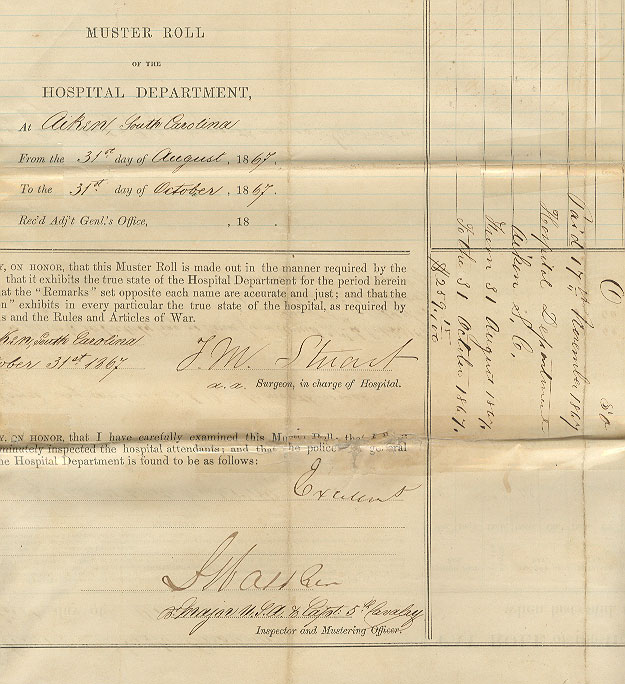 MUSTER ROLL
OF THE
HOSPITAL DEPARTMENT,
At Aiken, South Carolina
From the 31st day of August, 1867.
To the 31st day of October, 1867.
Rec'd Adj't Genl.'s Office, , 18 .
Y, ON HONOR, that this Muster Roll is made out in the manner required by the
that it exhibits the true state of the Hospital Department for the period herein
at the "Remarks" set opposite each name are accurate and just; and that the
n" exhibits in every particular the true state of the hospital, as required by
s and the Rules and Articles of War.
ken, South Carolina
ober 31st 1867
J. M. Stuart
a. a. Surgeon, in charge of Hospital.
Y, ON HONOR, that I have carefully examined this Muster Roll; that
minutely inspected the hospital attendants; and that the police general
he Hospital Department is found to be as follows:
Excellent
Major U.S.A. & Capt. 5th Cavalry
Inspector and Mustering Officer.
Paid 17th November 1867
Hospital Department
Aiken S. C.
From 31 August 1867
To the 31 October 1867.